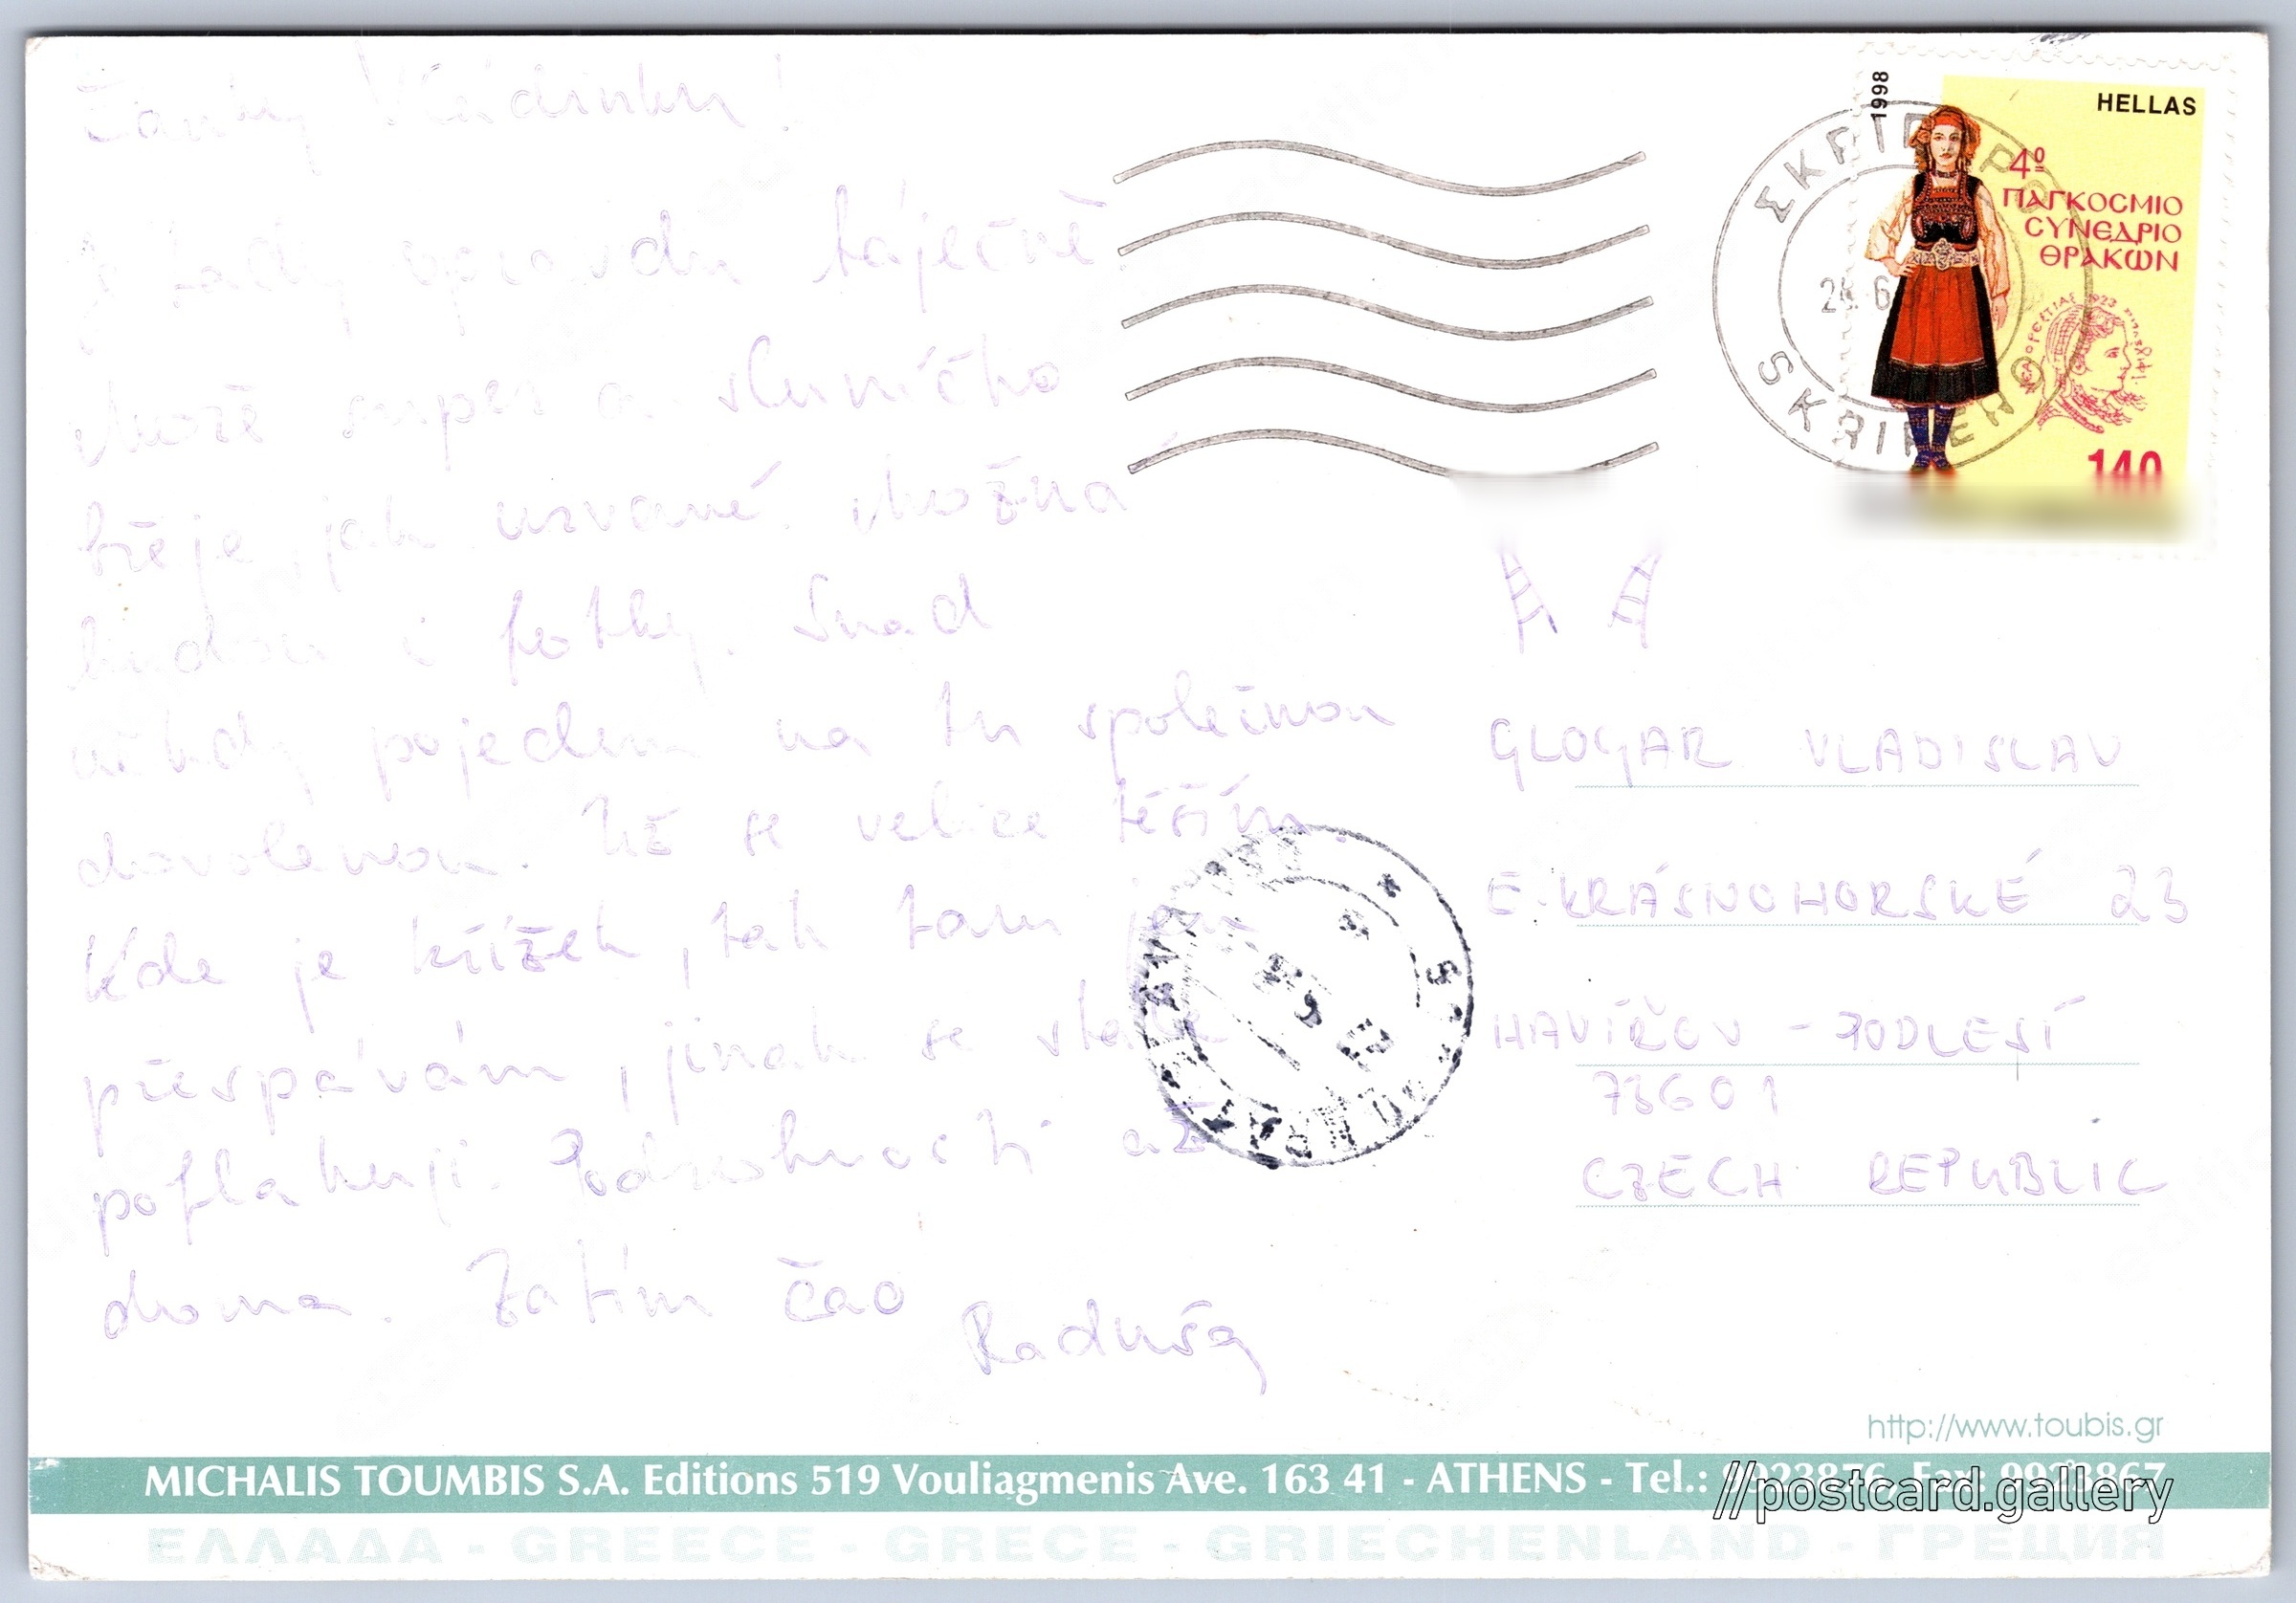 Vládínku!
tady opravdu báječně.
Moře super a sluníčko
hřeje, jak vzvané. Možná
budou i fotky. Snad
někdy pojedem na tu společnou
dovolenou. Už se velice těším.
Kde je křížek, tak tam jen
přespávám, jinak se stále
poflakuji. Podrobnosti až
doma. Zatím čao
Raduša
1998
HELLAS
4º
ΠΑΓΚΟСΜΙΟ
СΥΝΕΔΡΙΟ
ΘΡΑΚΩΝ
140
GLOGAR VLADISLAV
E. KRÁSNOHORSKÉ 23
HAVÍŘOV - PODLESÍ
73601
CZECH REPUBLIC
http://www.toubis.gr
MICHALIS TOUMBIS S.A. Editions 519 Vouliagmenis Ave. 163 41 - ATHENS - Tel.: 9923876, Fax: 9923867
//postcard.gallery
ΕΛΛΑΔΑ - GREECE - GRECE - GRIECHENLAND - ГРЕЦИЯ